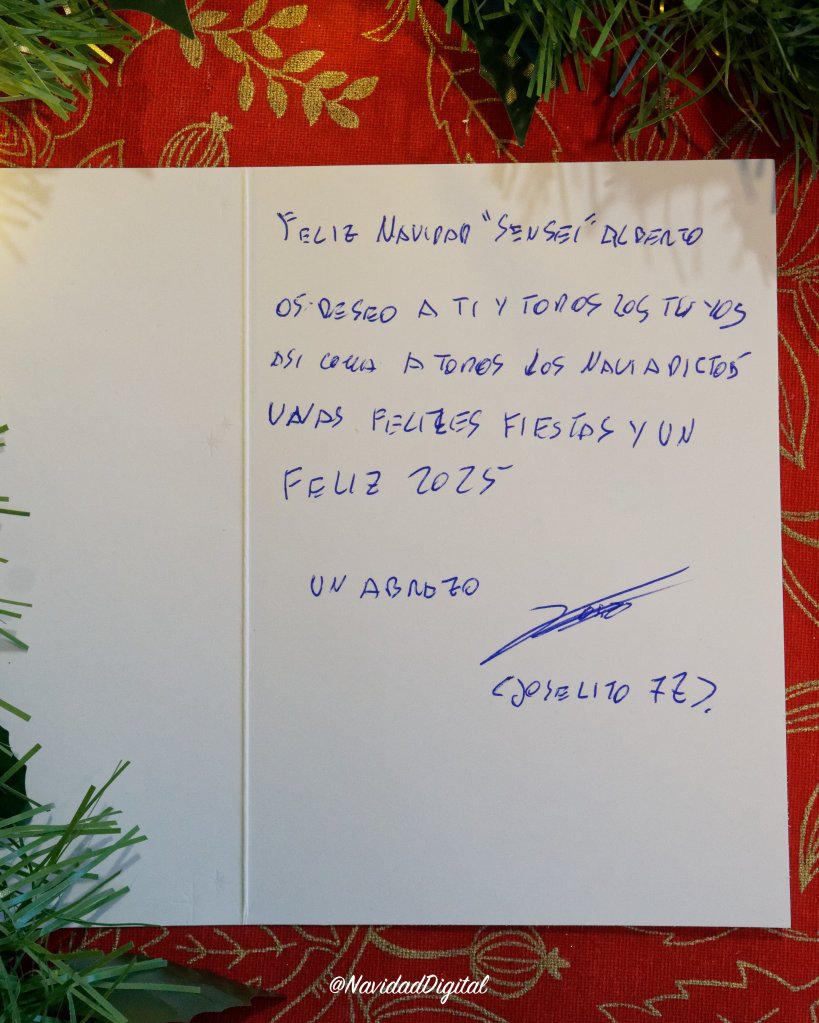 FELIZ NAVIDAD "SENSEI" ALBERTO
OS DESEO A TI Y TODOS LOS TUYOS
ASI COMO A TODOS LOS NAVIADICTOS
UNAS FELICES FIESTAS Y UN
FELIZ 2025
UN ABRAZO
(JOSELITO 77).
@NavidadDigital